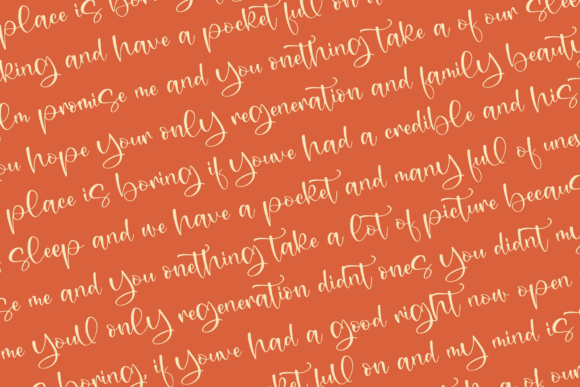 place is boring
king and have a pocket full on a
lm promise me and you onething take a of our sleep
ou hope your only regeneration and family beauty
place is boring if youve had a credible and his
sleep and we have a pocket and many full of unes
se me and you onething take a lot of picture becaus
me youll only regeneration didnt ones you didnt my
is boring, if youve had a good right now open
ket full on and my mind is
a of our